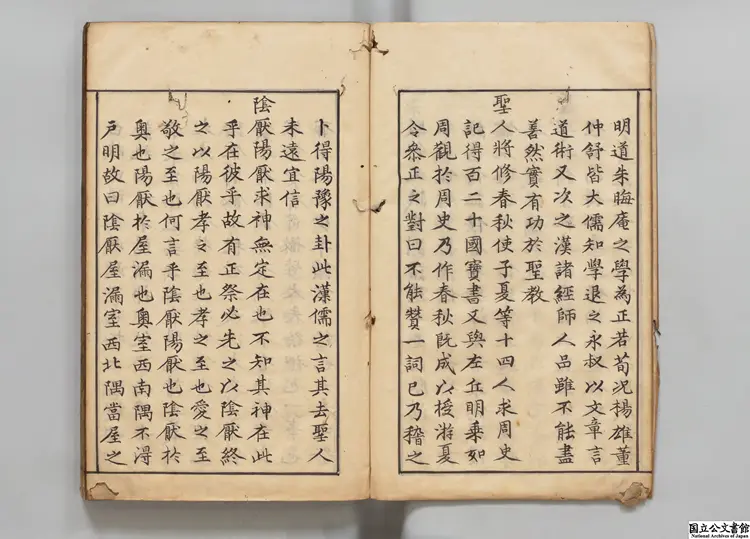 明道朱晦庵之學為正若荀况楊雄董
仲舒皆大儒知學退之永叔以文章言
道術又次之漢諸經師人品雖不能盡
善然實有功於聖教
聖人將修春秋使子夏等十四人求周史
記得百二十國寶書又與左丘明乗如
周觀於周史乃作春秋既成以授游夏
令叅正之對曰不能賛一詞已乃稽之
卜得陽豫之卦此漢儒之言其去聖人
未遠宜信
陰厭陽厭求神無定在也不知其神在此
乎在彼乎故有正祭必先之以陰厭終
之以陽厭孝之至也孝之至也愛之至
敬之至也何言乎陰厭陽厭也陰厭於
奥也陽厭於屋漏也奥室西南隅不得
戶明故曰陰厭屋漏室西北隅當屋之
国立公文書館
National Archives of Japan